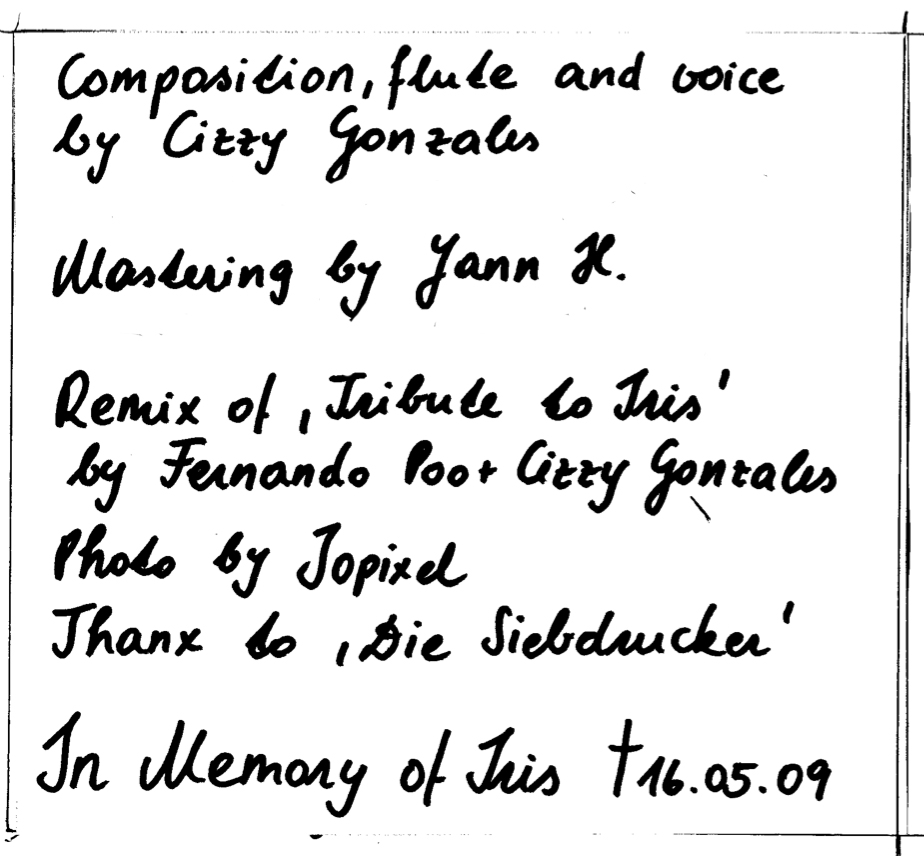 Composition, flute and voice
by Cizzy Gonzales
Mastering by Yann H.
Remix of ‚Tribute to Iris'
by Fernando Poo + Cizzy Gonzales
Photo by Jopixel
Thanx to ‚Die Siebdrucker'
In Memory of Iris †16.05.09